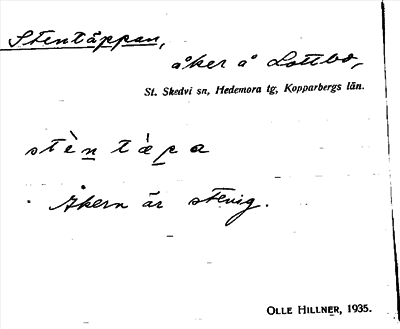 Stentäppan,
åker å Lottbo,
St. Skedvi sn, Hedemora tg, Kopparbergs län.
stèn tàpa
Åkern är stenig.
OLLE HILLNER, 1935.